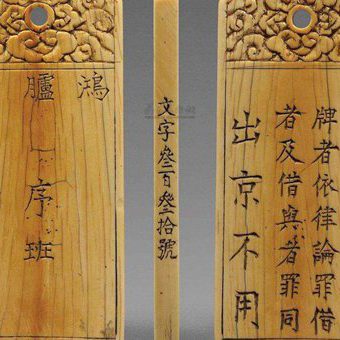 鴻
臚序班
文字叄百叄拾號
牌者依律論罪借
者及借與者罪同
出京不用